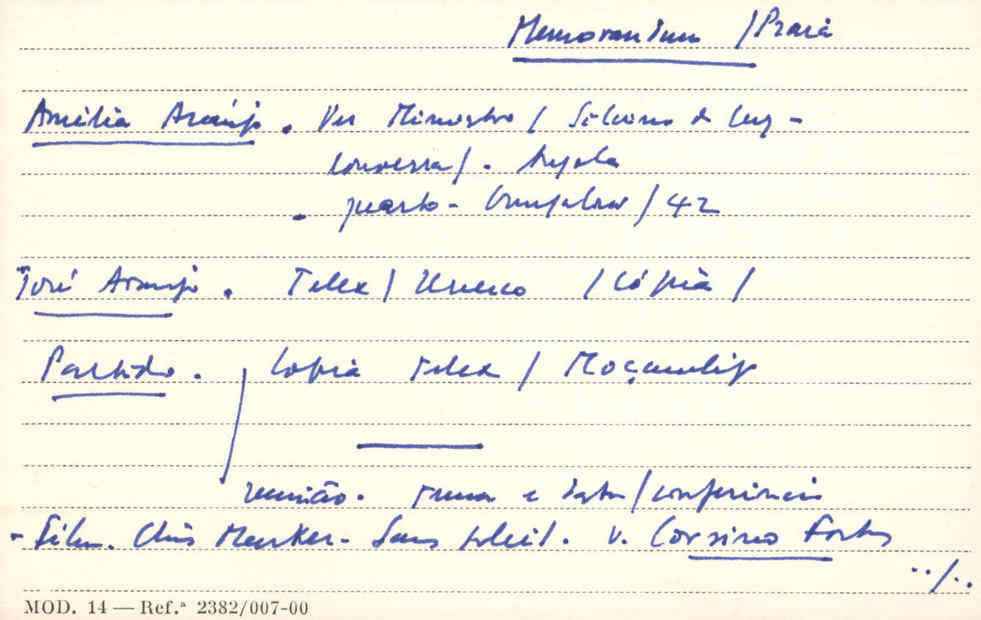 Memorandum / Praia
Amélia Araújo . Ver Ministro / Silvino da Luz -
conversa / . Angola
. quarto - Bungalow / 42
José Araújo . Telex / Unesco / Cópia /
Partido . Cópia Telex / Moçambiq
reunião . Tema e data / conferência
- Film. Chris Marker - Sans Soleil . v. Corsino Fortes
../..
MOD. 14 — Ref.ª 2382/007-00